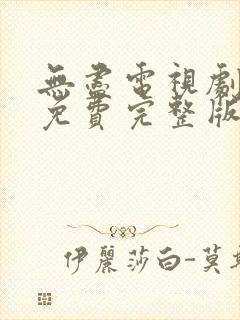 無盡電視劇
免費完整版
伊麗莎白-莫